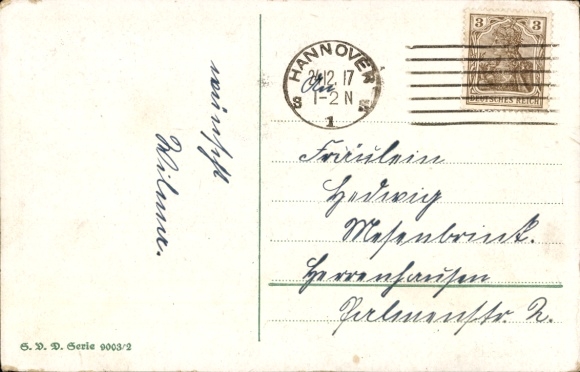 wünscht
Wilma.
S. V. D. Serie 9003/2
HANNOVER
24.12.17
1-2 N
S
1
3 3
DEUTSCHES REICH
An
Fräulein
Hedwig
Mesenbrink.
Herrenhausen
Palmenstr. 2.